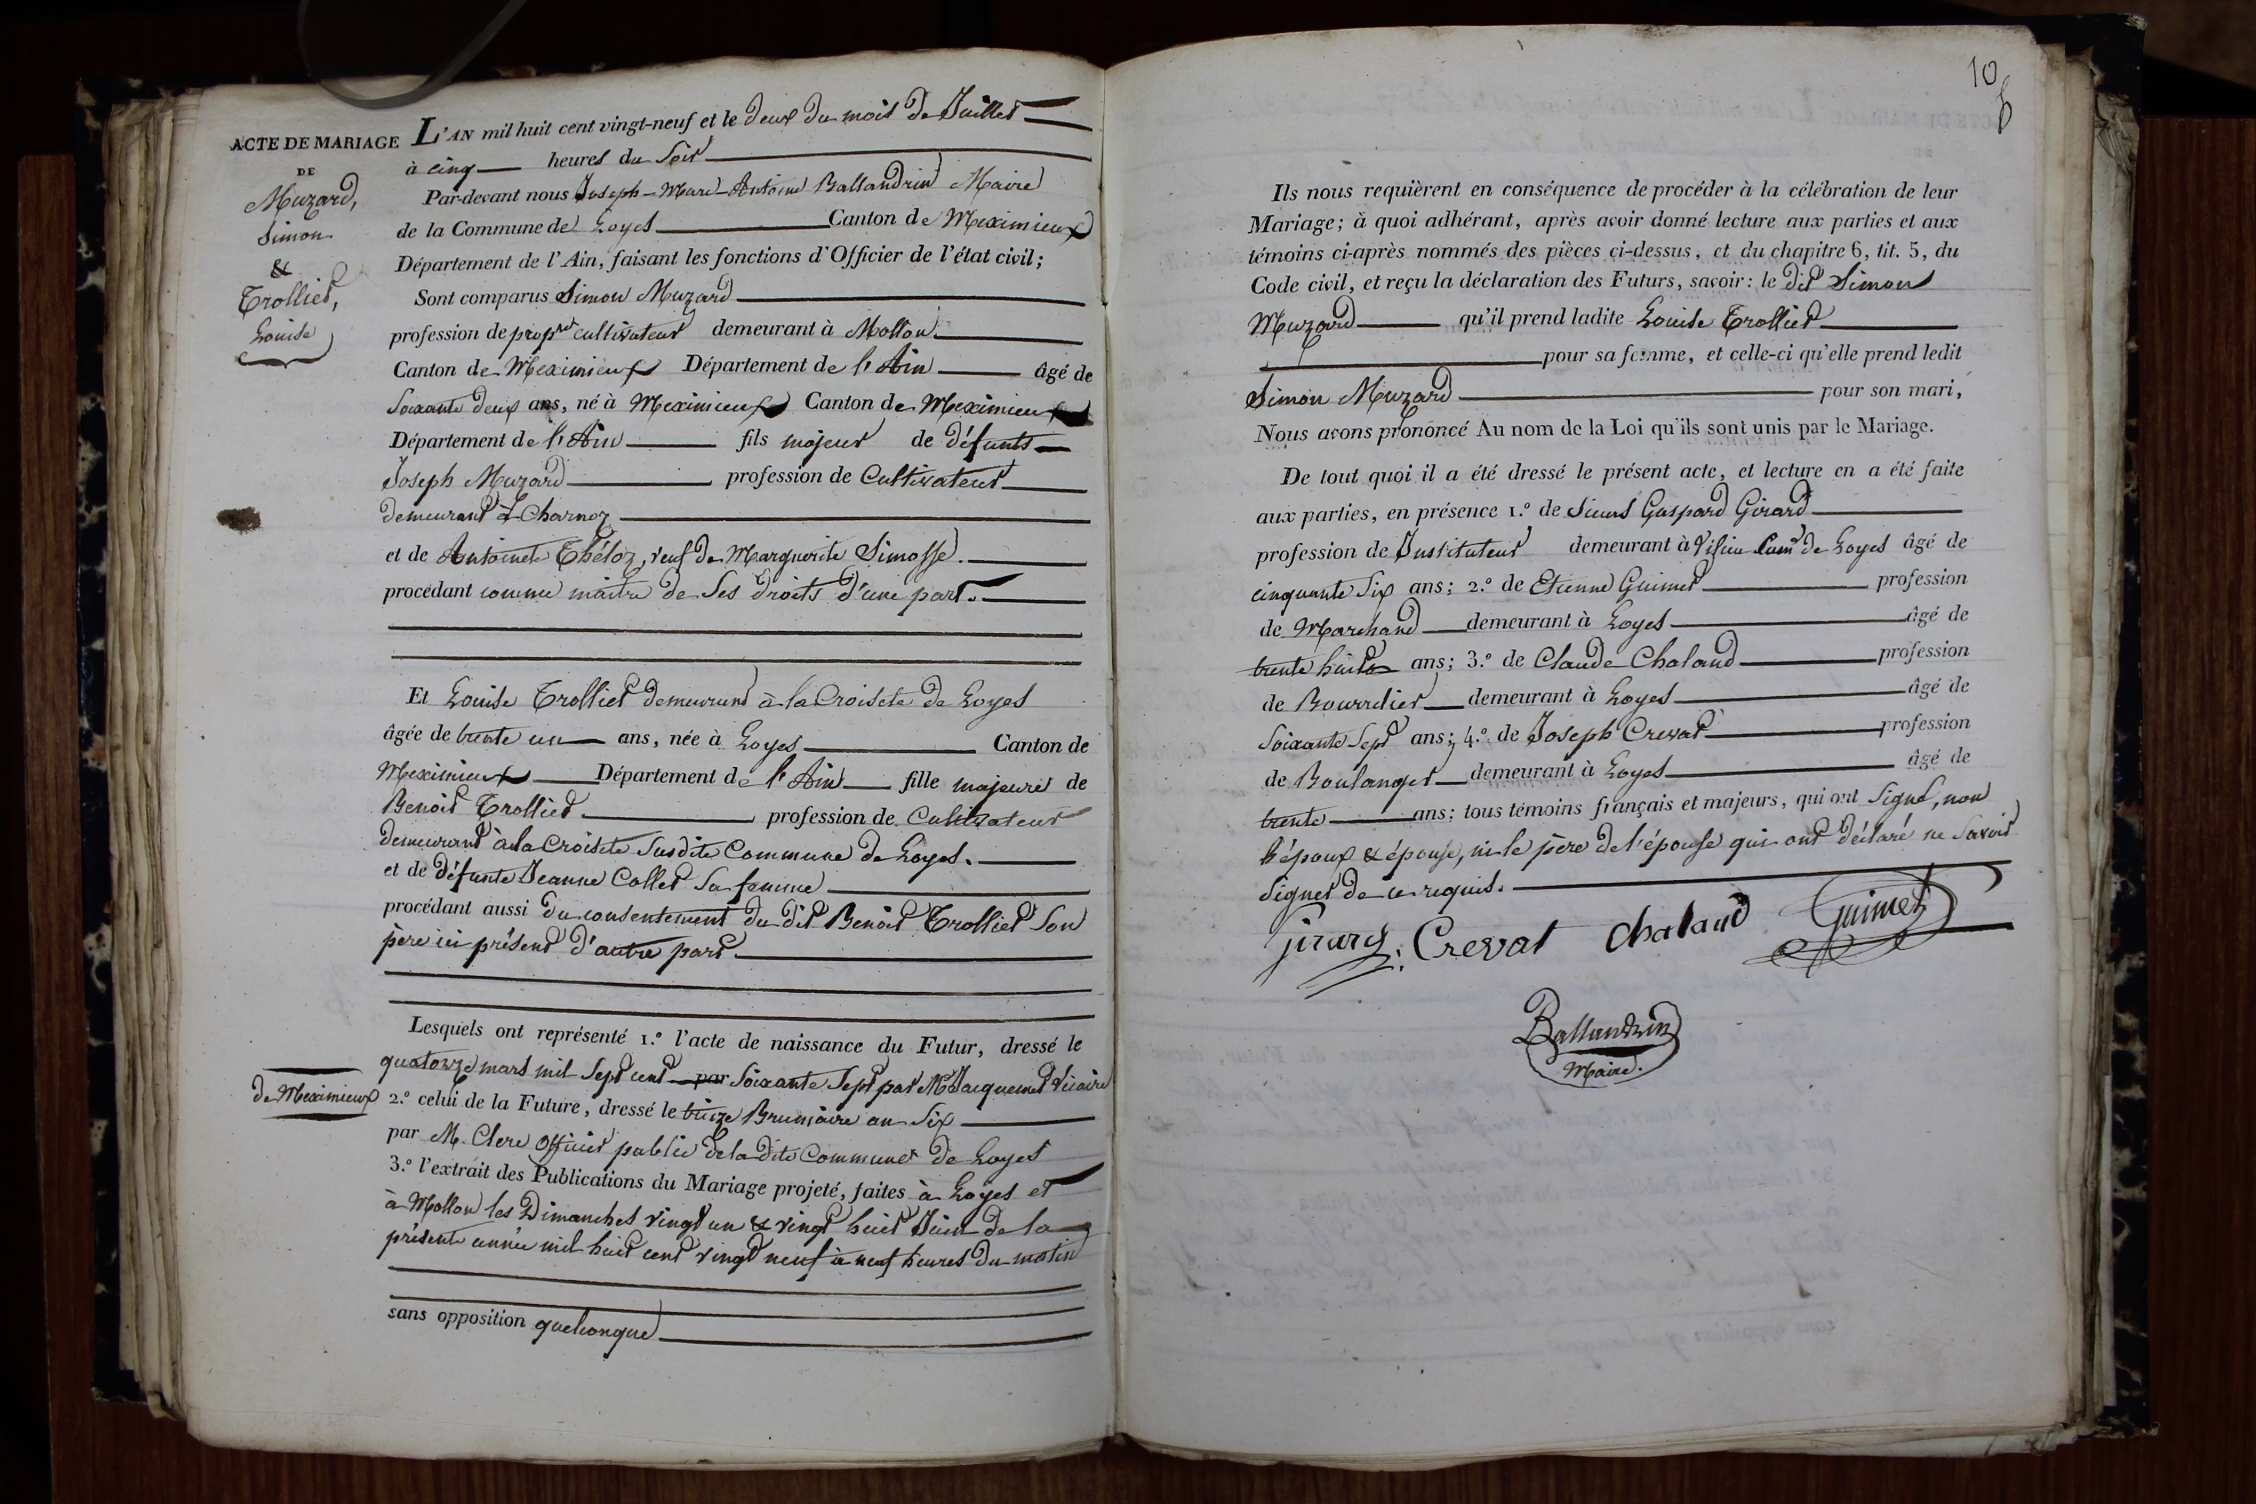 ACTE DE MARIAGE
DE
Muzard,
Simon
&
Trolliet,
Louise
L'AN mil huit cent vingt-neuf et le deux du mois de Juillet
à cinq heures du soir
Par-devant nous Joseph-Marc-Antoine Ballandrin Maire
de la Commune de Loyes Canton de Meximieux
Département de l'Ain, faisant les fonctions d'Officier de l'état civil;
Sont comparus Simon Muzard
profession de propre cultivateur demeurant à Mollon
Canton de Meximieux Département de l'Ain âgé de
soixante deux ans, né à Meximieux Canton de Meximieux
Département de l'Ain fils majeur de défunts
Joseph Muzard profession de Cultivateur
demeurant à Charnoz
et de Antoinete Théloz, veuf de Marguerite Simosse.
procédant comme maître de ses droits d'une part.
Et Louise Trolliet demeurant à la Croisete de Loyes
âgée de trente un ans, née à Loyes Canton de
Meximieux Département de l'Ain fille majeure de
Benoit Trolliet profession de Cultivateur
demeurant à la Croisete susdite Commune de Loyes.
et de défunte Jeanne Collet sa femme
procédant aussi du consentement du dit Benoit Trolliet son
père ici présent d'autre part.
Lesquels ont représenté 1.º l'acte de naissance du Futur, dressé le
quatorze mars mil sept cent par soixante sept par Mr Jacquemet Vicaire
de Meximieux
2.º celui de la Future, dressé le treize Brumaire an six
par M. Clerc officier public de la dite Commune de Loyes
3.º l'extrait des Publications du Mariage projeté, faites à Loyes et
à Mollon les Dimanches vingt un & vingt huit Juin de la
présente année mil huit cent vingt neuf à neuf heures du matin
sans opposition quelconque
10
Ils nous requièrent en conséquence de procéder à la célébration de leur
Mariage; à quoi adhérant, après avoir donné lecture aux parties et aux
témoins ci-après nommés des pièces ci-dessus, et du chapitre 6, tit. 5, du
Code civil, et reçu la déclaration des Futurs, savoir: le dit Simon
Muzard qu'il prend ladite Louise Trolliet
pour sa femme, et celle-ci qu'elle prend ledit
Simon Muzard pour son mari,
Nous avons prononcé Au nom de la Loi qu'ils sont unis par le Mariage.
De tout quoi il a été dressé le présent acte, et lecture en a été faite
aux parties, en présence 1.º de Sieurs Gaspard Girard
profession de Instituteur demeurant à Visieu Comne de Loyes âgé de
cinquante six ans; 2.º de Etienne Guimet profession
de Marchand demeurant à Loyes âgé de
trente huit ans; 3.º de Claude Chaland profession
de Bourrelier demeurant à Loyes âgé de
soixante sept ans; 4.º de Joseph Crevat profession
de Boulanger demeurant à Loyes âgé de
trente ans; tous témoins français et majeurs, qui ont signé, non
l'époux & épouse, ni le père de l'épouse qui ont déclaré ne savoir
signer de ce requis.
Girard Crevat Chaland Guimet
Ballandrin
Maire.